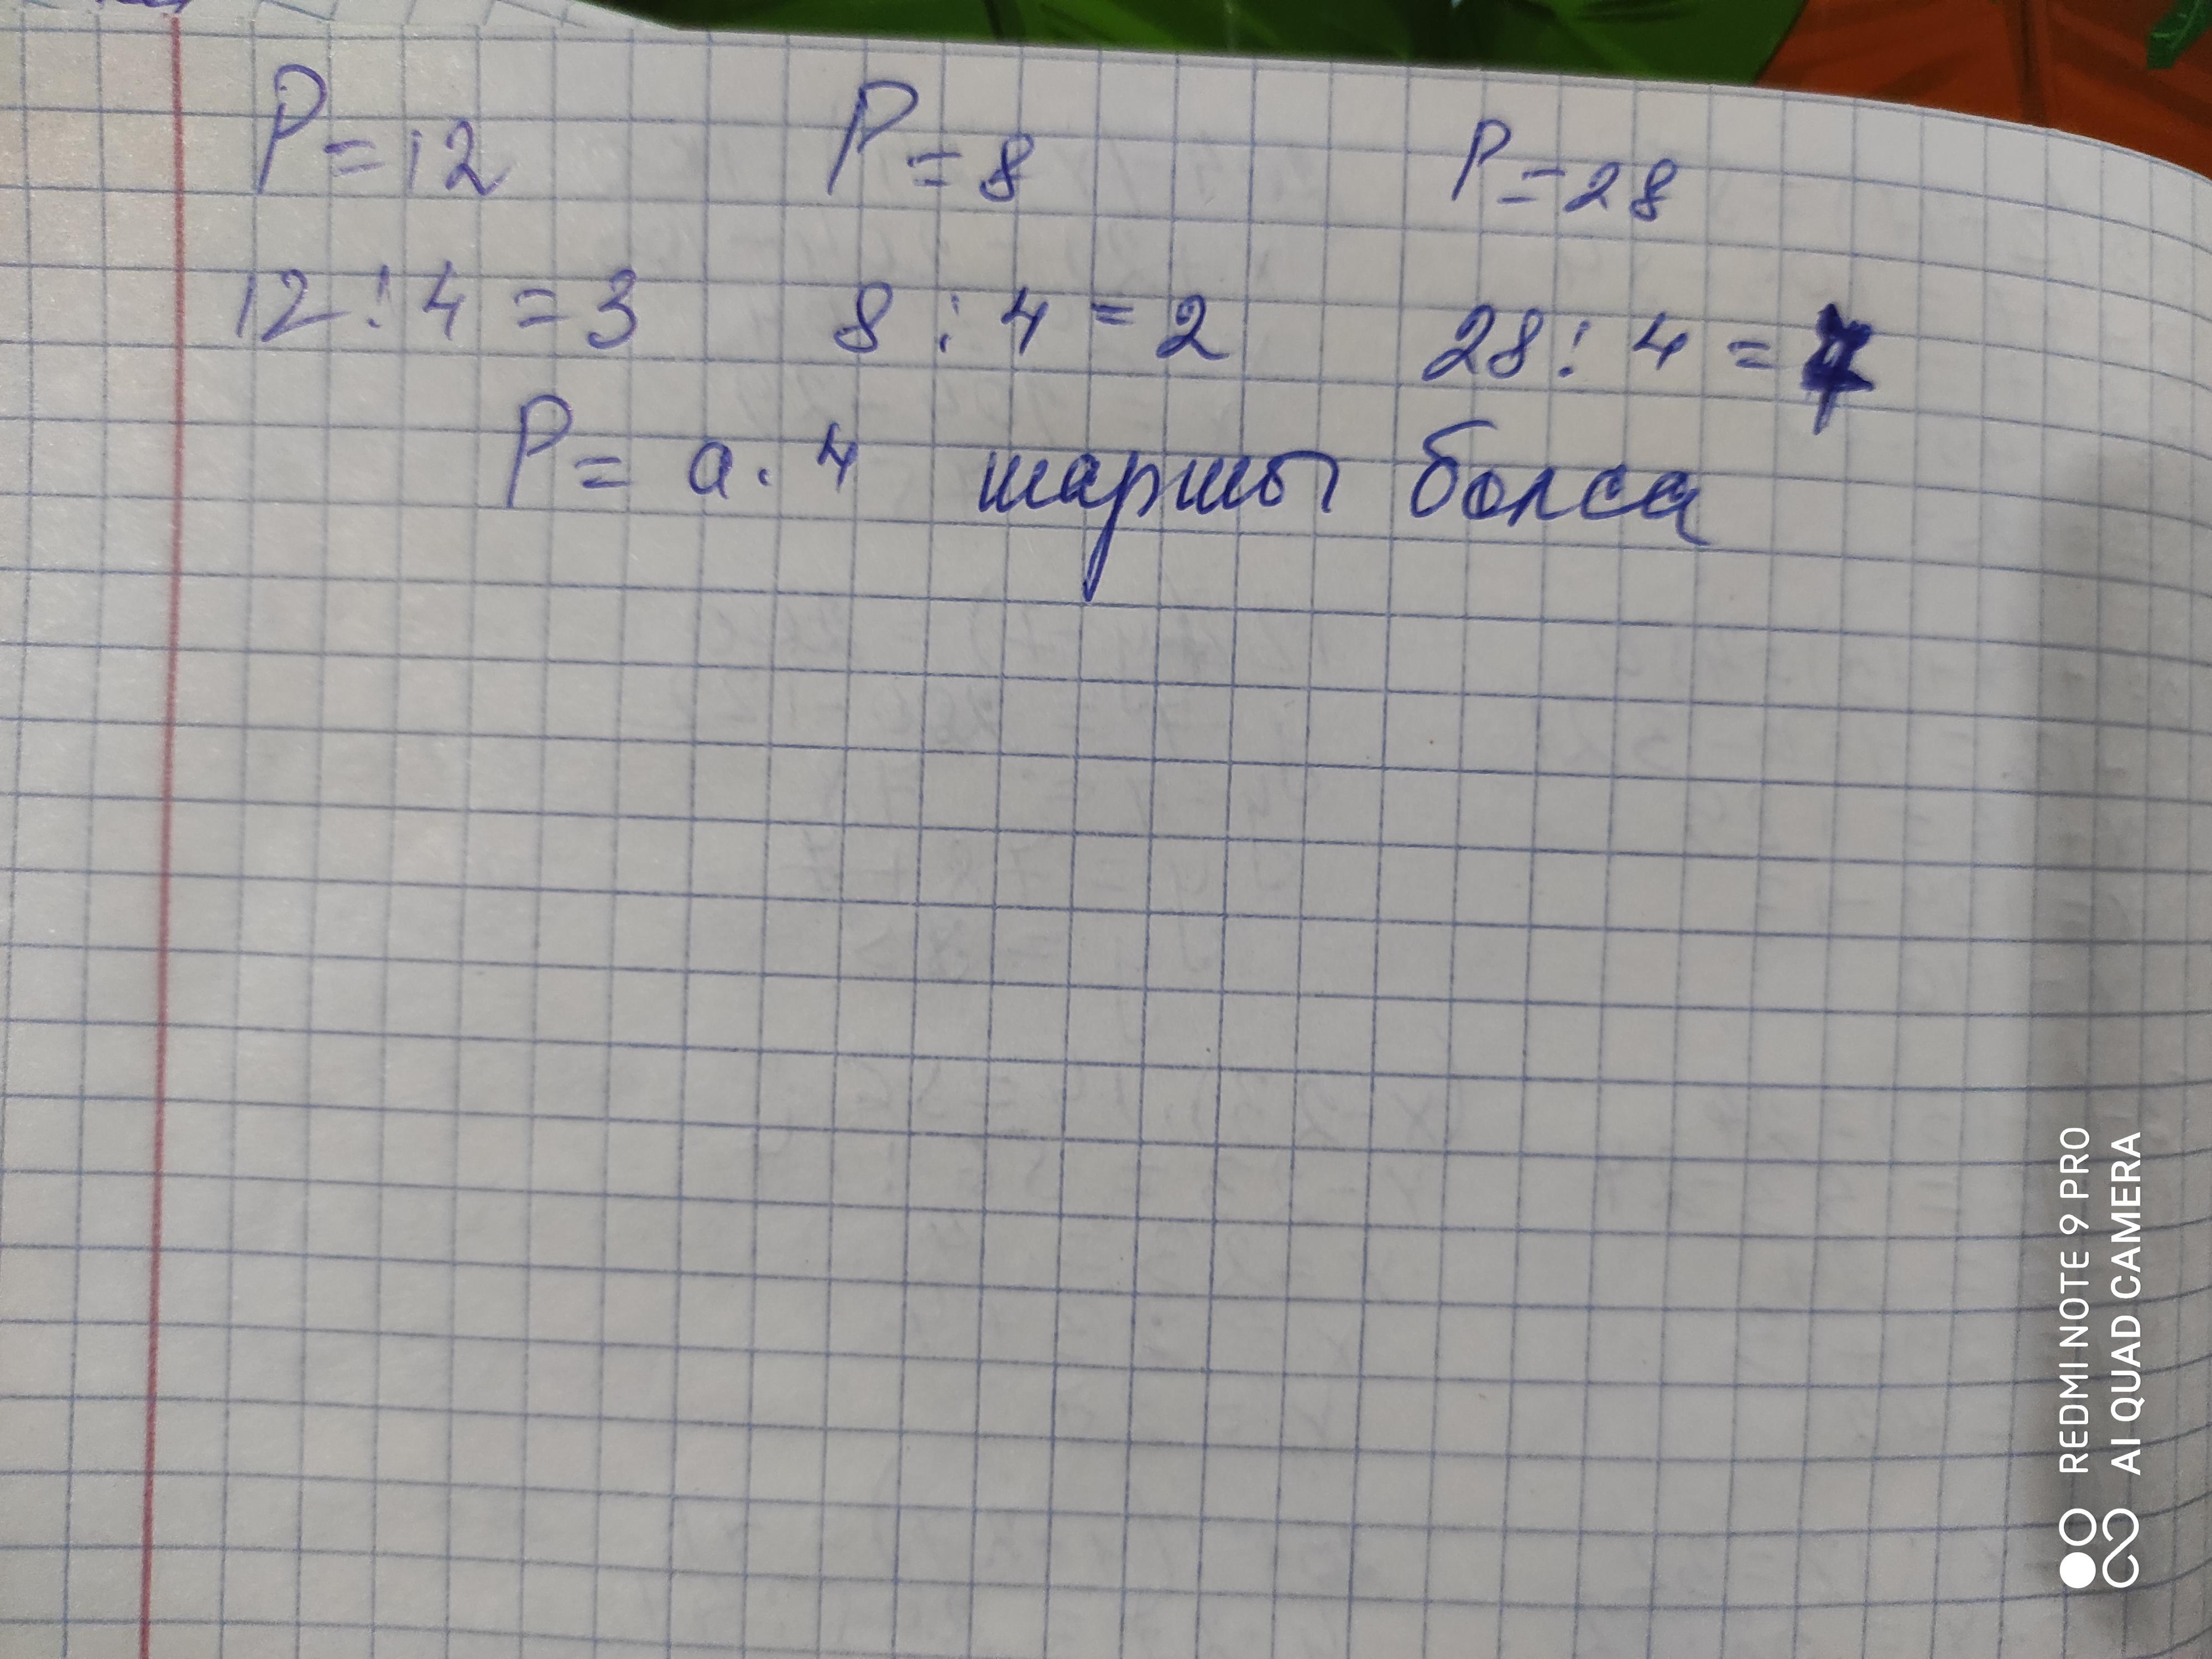 P = 12 P = 8 P = 28
12 : 4 = 3 8 : 4 = 2 28 : 4 = 7
P = a · 4 шаршы болса
REDMI NOTE 9 PRO
AI QUAD CAMERA